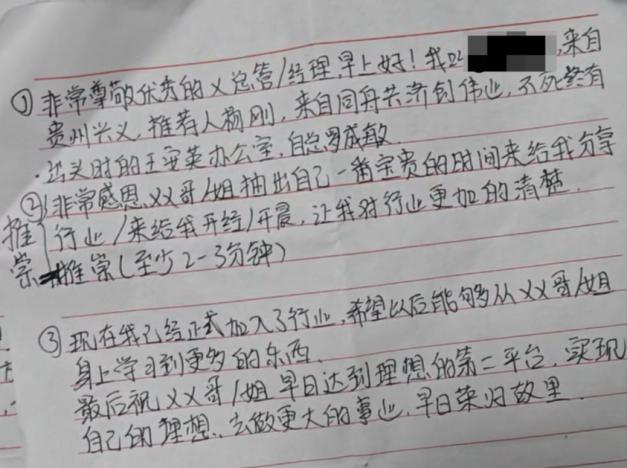 ① 非常尊敬优秀的×总管/经理,早上好!我叫 ,来自
贵州兴义,推荐人杨刚,来自同舟共济创伟业,不死终有
出头时的王安英办公室,自总
② 非常感恩××哥/姐抽出自己一番宝贵的时间来给我分享
行业/来给我开经/开晨,让我对行业更加的清楚.
推崇 推崇(至少2-3分钟)
③ 现在我已经正式加入了行业,希望以后能够从××哥/姐
身上学习到更多的东西.
最后祝××哥/姐早日达到理想的第二平台,实现
自己的理想.去做更大的事业,早日荣归故里.